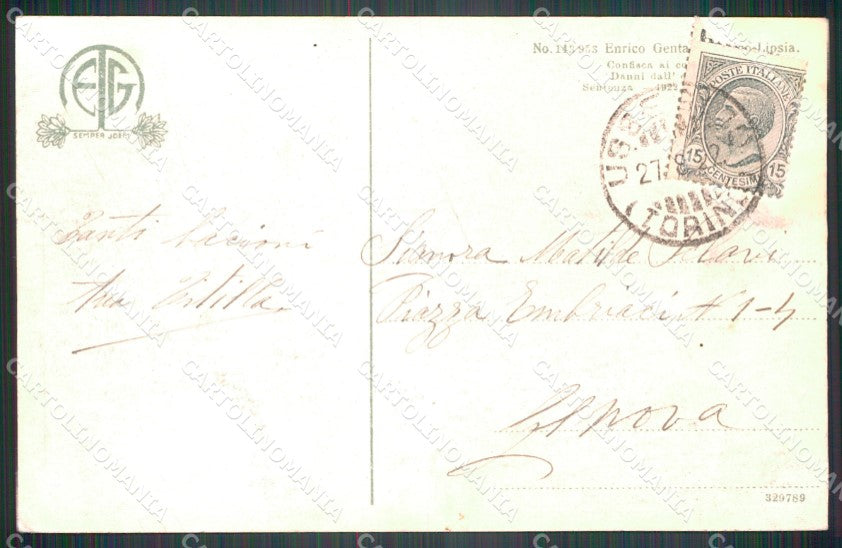 EGT
SEMPER IDEM
No. 143953 Enrico Genta Lipsia.
Confisca ai
Danni dall'
Sentenza 1922
POSTE ITALIANE
15 CENTESIMI 15
27
(TORINO)
Tanti bacioni
tua
Signora Matilde
Piazza Embriaci N 1-4
Genova
329789
CARTOLINOMANIA